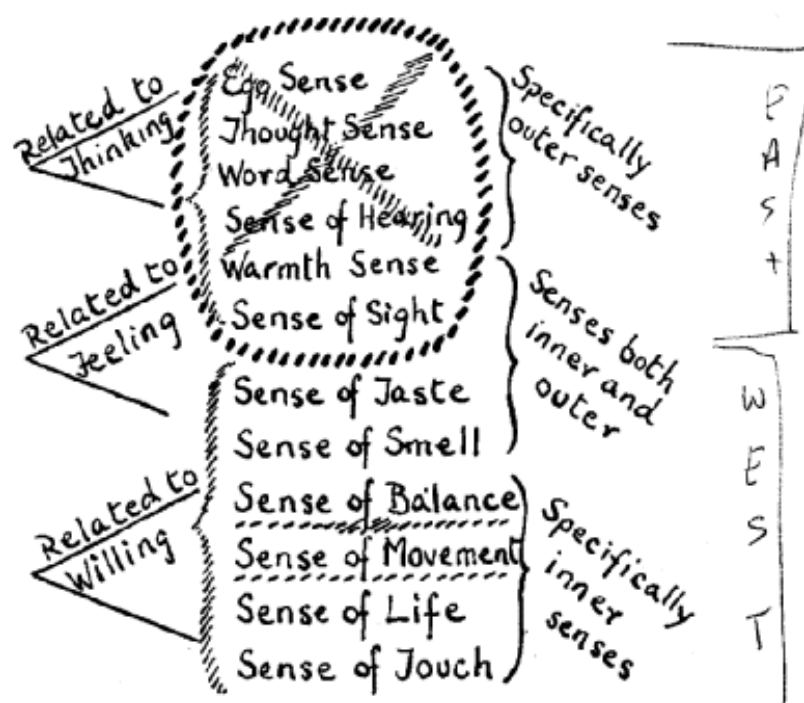 Related to
Thinking
Related to
Feeling
Related to
Willing
Ego Sense
Thought Sense
Word Sense
Sense of Hearing
Warmth Sense
Sense of Sight
Sense of Taste
Sense of Smell
Sense of Balance
Sense of Movement
Sense of Life
Sense of Touch
Specifically
outer senses
Senses both
inner and
outer
Specifically
inner
senses
EAST
WEST